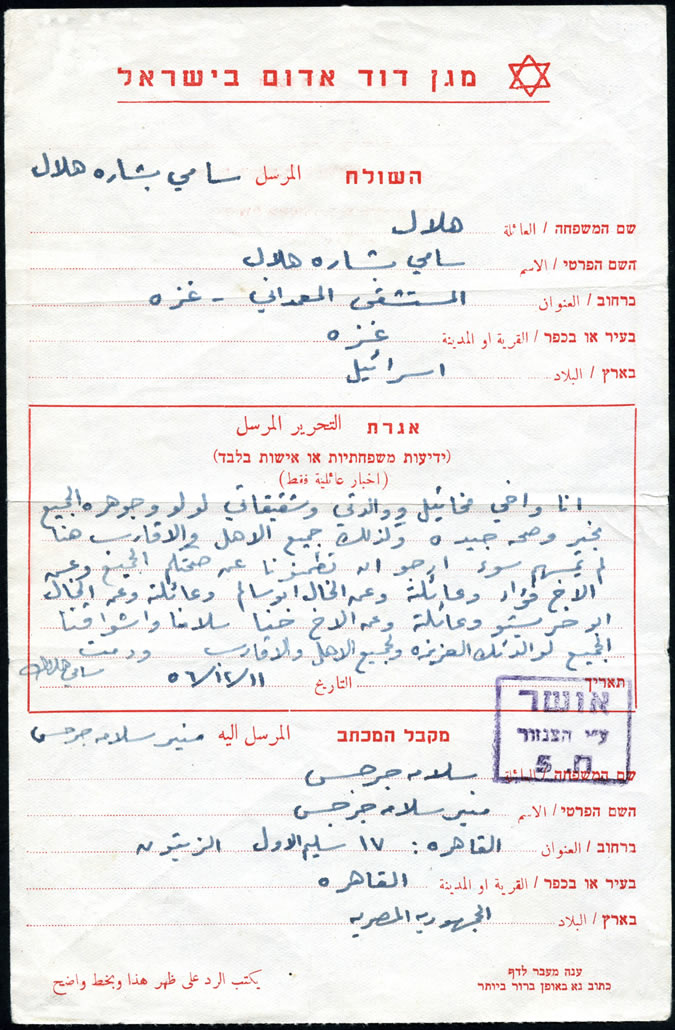 מגן דוד אדום בישראל
השולח المرسل سامي بشاره هلال
שם המשפחה / العائلة هلال
השם הפרטי / الاسم سامي بشاره هلال
ברחוב / العنوان المستشفى المعمداني - غزه
בעיר או בכפר / القرية او المدينة غزه
בארץ / البلاد اسرائيل
אגרת التحرير المرسل
(ידיעות משפחתיות או אישות בלבד)
(اخبار عائلية فقط)
انا واخي مخائيل ووالدتي وشقيقاتي لولو وجوهره الجميع
بخير وصحه جيده وكذلك جميع الاهل والاقارب هنا
لم يمسهم سوء ارجو ان تطمنونا عن صحتكم الجميع وعن
الاخ فؤاد وعائلته وعن الخال ابو سالم وعائلته وعن الخال
ابو خرستو وعائلته وعن الاخ حنا سلامنا واشواقنا
الجميع لوالدتك العزيزه ولجميع الاهل والاقارب ودمت
سامي هلال
תאריך التاريخ ٥٦/١٢/١١
אושר
ע״י הצנזור
מקבל המכתב المرسل اليه منير سلامه جرجس
שם המשפחה / العائلة سلامه جرجس
השם הפרטי / الاسم منير سلامه جرجس
ברחוב / العنوان القاهره : ١٧ سليم الاول الزيتون
בעיר או בכפר / القرية او المدينة القاهره
בארץ / البلاد الجمهوريه المصريه
ענה מעבר לדף
כתוב נא באופן ברור ביותר
يكتب الرد على ظهر هذا وبخط واضح